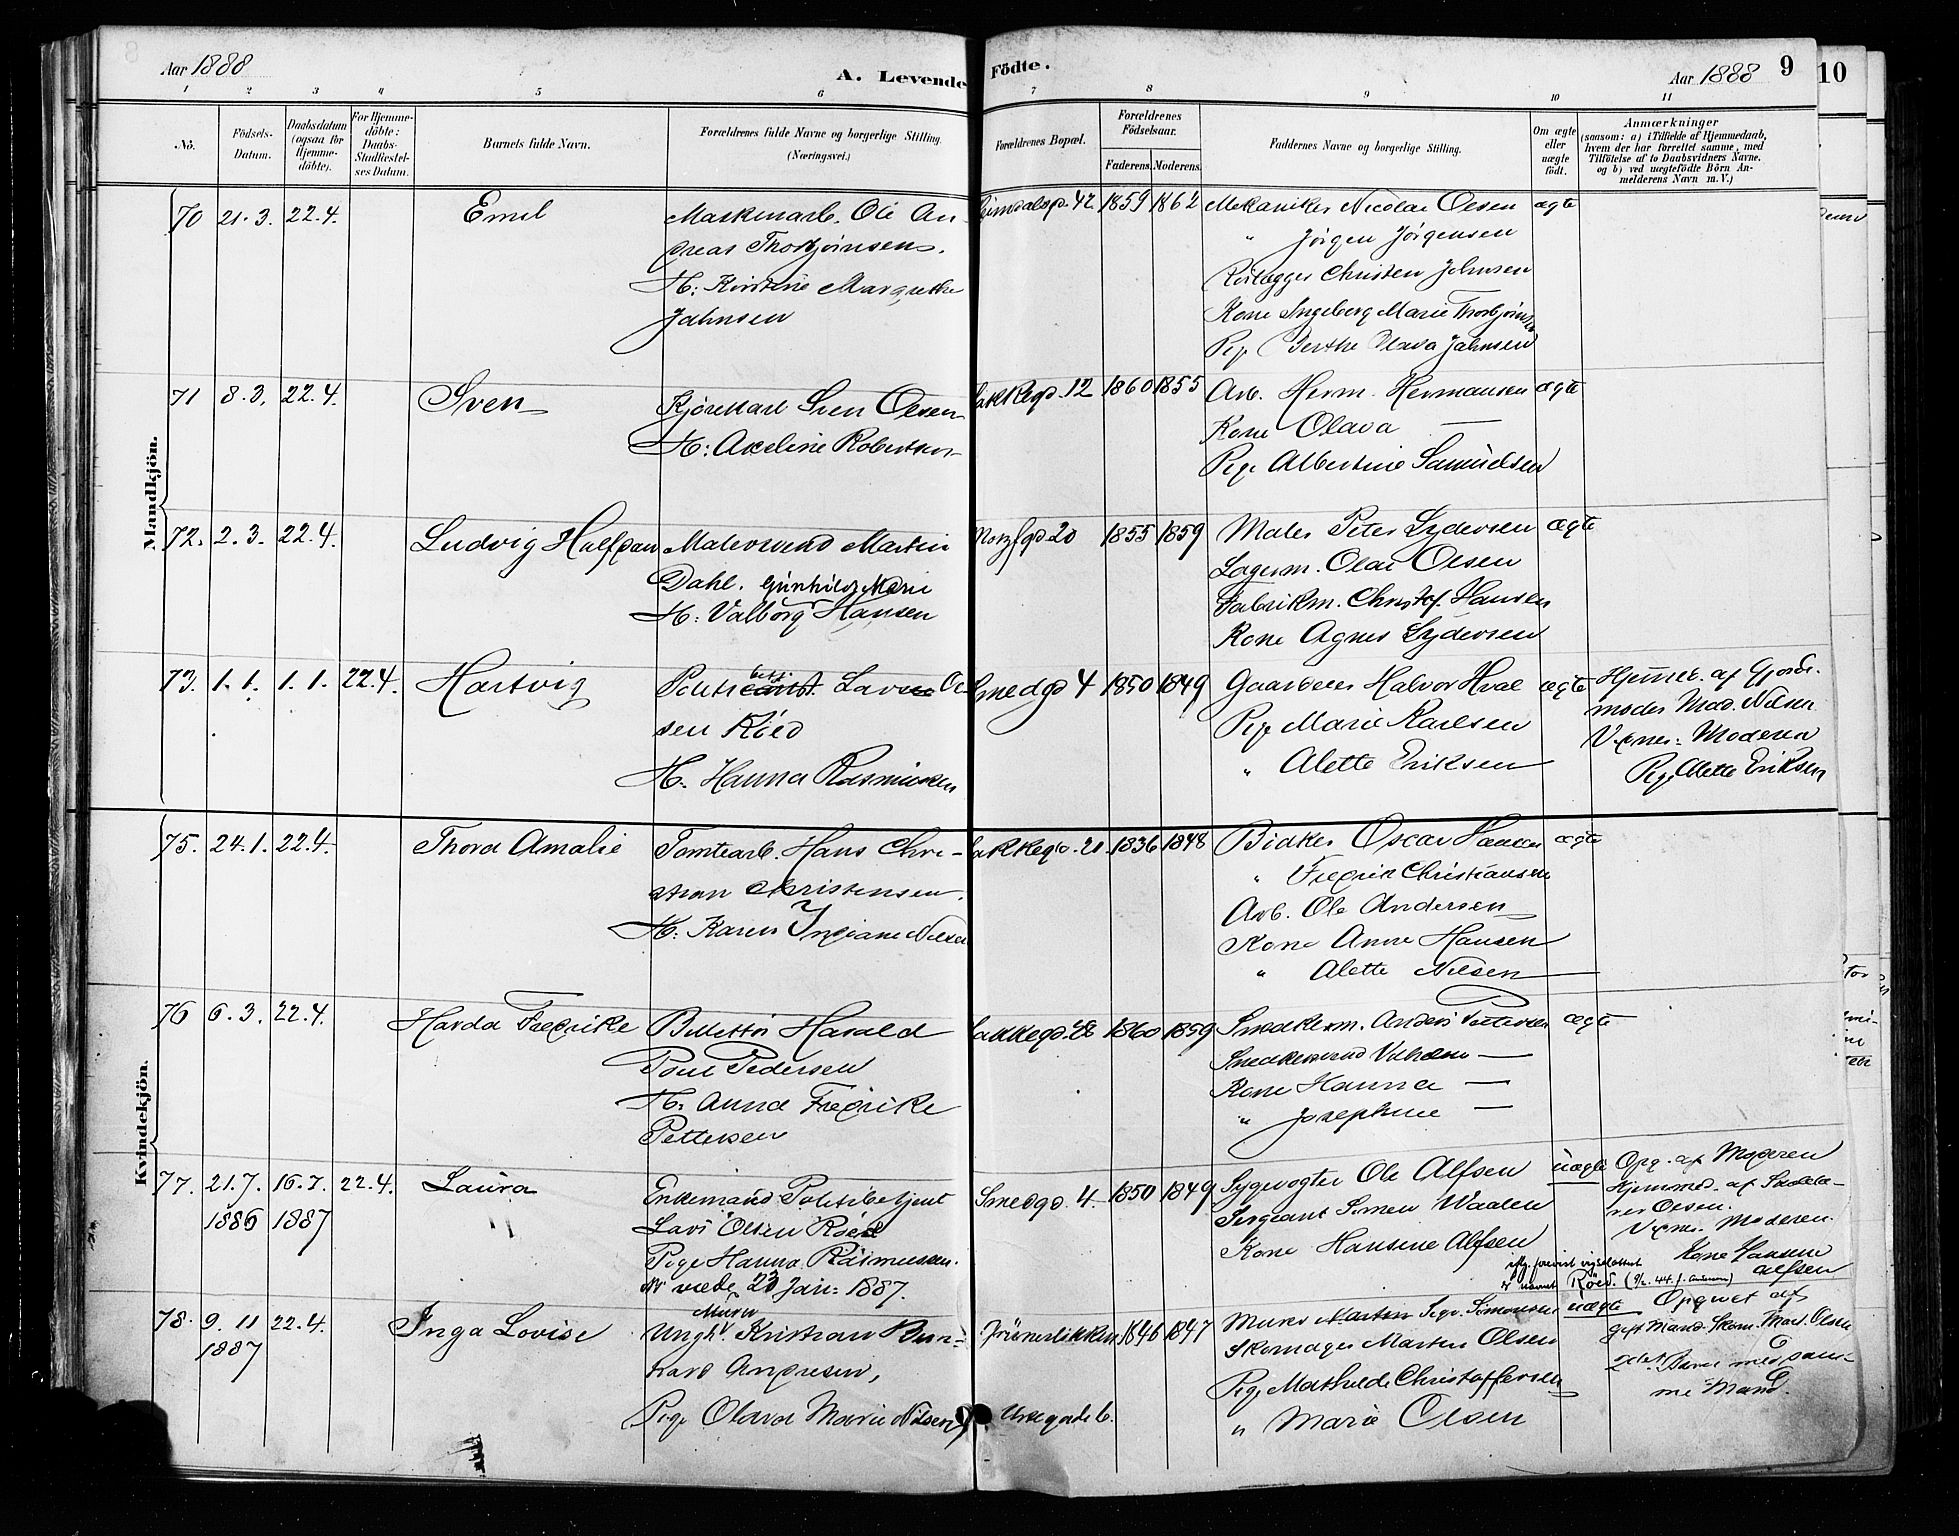 Aar 1888
A. Levende Födte.
Aar 1888 9
10
1 2 3 4 5 6 7 8 9 10 11
No.
Födsels-Datum.
Daabsdatum (ogsaa for Hjemme-döbte).
For Hjemme-döbte: Daabs-Stadfæstel-ses Datum.
Barnets fulde Navn.
Forældrenes fulde Navne og borgerlige Stilling.
(Næringsvei.)
Forældrenes Bopæl.
Forældrenes Födselsaar.
Faderens. Moderens.
Faddernes Navne og borgerlige Stilling.
Om ægte eller uægte födt.
Anmærkninger
(saasom: a) i Tilfælde af Hjemmedaab,
hvem der har forrettet samme, med
Tilföielse af to Daabsvidners Navne.
og b) ved uægtefödte Börn An-
melderens Navn m. V.)
Mandkjön.
70 21.3. 22.4. Emil
Maskinarb. Ole An-
dreas Thorbjørnsen.
H: Kirstine Margrethe
Jahnsen
42 1859 1862
Mekaniker Nicolai Olsen ægte
" Jørgen Jørgensen
Rørlægger Christen Johnsen
Kone Ingeborg Marie Thorbjørnsen
Pige Berthe Olava Jahnsen
71 8.3. 22.4. Sven
Kjørekarl Sven Olsen
H: Axeline Robertsen
Lakkegd. 12 1860 1855
Arb. Herm. Hermansen ægte
Kone Olava —
Pige Albertine Samuelsen
72. 2.3. 22.4. Ludvig Halfdan
Malersvend Martin
Dahl. Gunhild Marie
H: Valborg Hansen
Norbygd 20 1855 1859
Maler Peter Sydersen ægte
Lagerm. Olai Olsen
Fabrikm. Christof. Hansen
Kone Agnes Sydersen
73. 1.1. 1.1. 22.4. Hartvig
Politibetj. Lars Ol-
sen Röed
H. Hanna Rasmussen
Smedgd 4 1850 1849
Gaardeier Halvor Hval ægte
Pige Marie Karlsen
" Alette Eriksen
Hjemmed. af Gjorde-
moder Mad. Nilsen
Vidner: Moderen
Pige Alette Eriksen
Kvindekjön.
75. 24.1. 22.4. Thora Amalie
Tomtearb. Hans Chri-
stian Christensen.
H: Karen Ingiane Nilsen
Lakkegd. 20 1836 1848
Oscar Hansen ægte
" Fredrik Christiansen
Arb. Ole Andersen
Kone Anne Hansen
" Alette Nilsen
76 6.3. 22.4. Harda Fredrikke
Harald
Poul Pedersen
H. Anna Fredrikke
Pettersen
Lakkegd. 48 1860 1859
Snedkerm. Anders Pettersen ægte
Snedkersvend Vilhelm —
Kone Hanna —
" Josephine —
77. 21.7. 1886 16.7. 1887 22.4. Laura
Enkemand Politibetjent
Lars Olsen Röed
Pige Hanna Rasmussen.
viede 23 Jan: 1887.
Smedgd. 4. 1850 1849
Sygevogter Ole Alfsen uægte
Sergeant Simen Waalen
Kone Hansine Alfsen
Opg. af Moderen
Hjemmed. af Sadelma-
ger Olsen.
Vidner. Moderen.
Kone Hansine
Alfsen
iflg. forevist vigselattest
er navnet Röed.
78. 9.11 1887 22.4. Inga Lovise
Murer
Ungk. Kristian Bern-
hard Andresen,
Pige Olava Marie Nilsen
Grünerløkken 1846 1847
Urtegade 6.
Murer Sigv. Simonsen uægte
Skomager Martin Olsen
Pige Mathilde Christoffersen
" Marie Olsen
Opgivet af
gift Mand Skom. Mart. Olsen
2det Barn med sam-
me Mand.